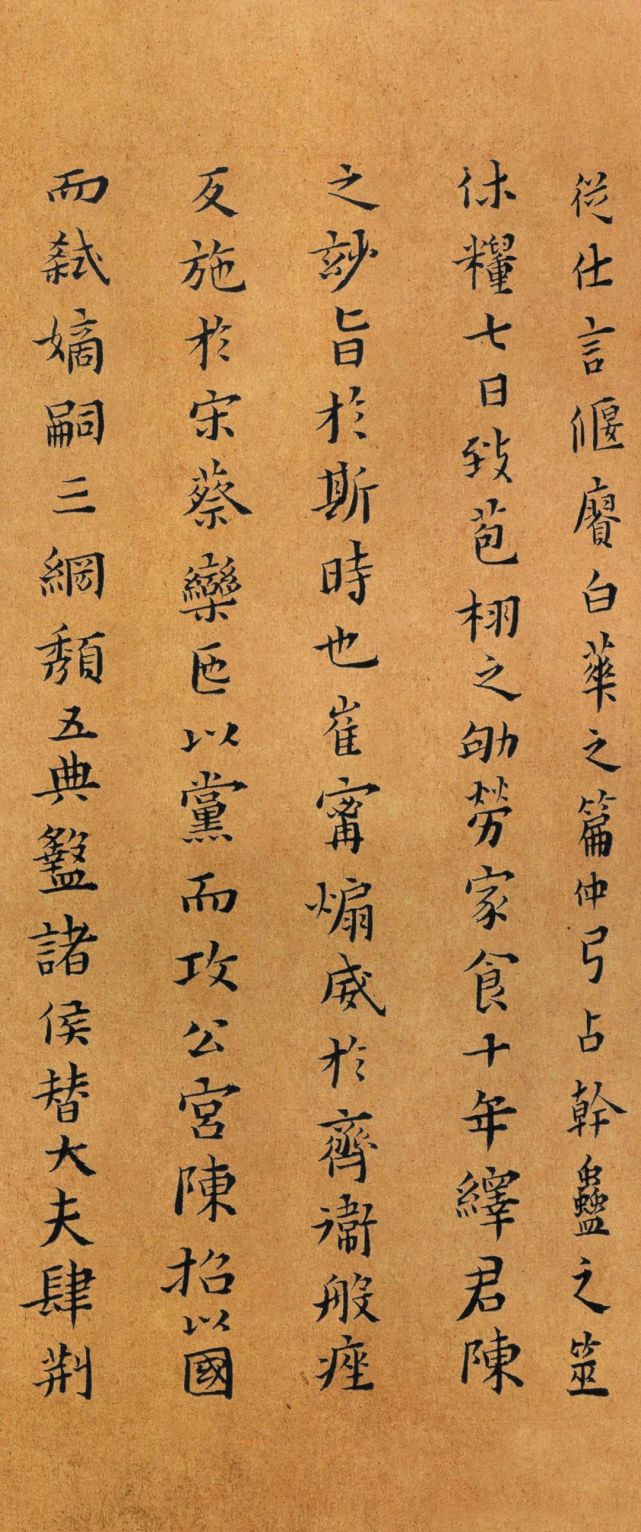 從仕言偃賡白華之篇仲弓占幹蠱之筮
休糧七日致苞栩之劬勞家食十年繹君陳
之玅旨於斯時也崔甯煽威於齊衞般痤
反施於宋蔡欒匜以黨而攻公宮陳招以國
而弑嫡嗣三綱頹五典盭諸侯替大夫肆荆